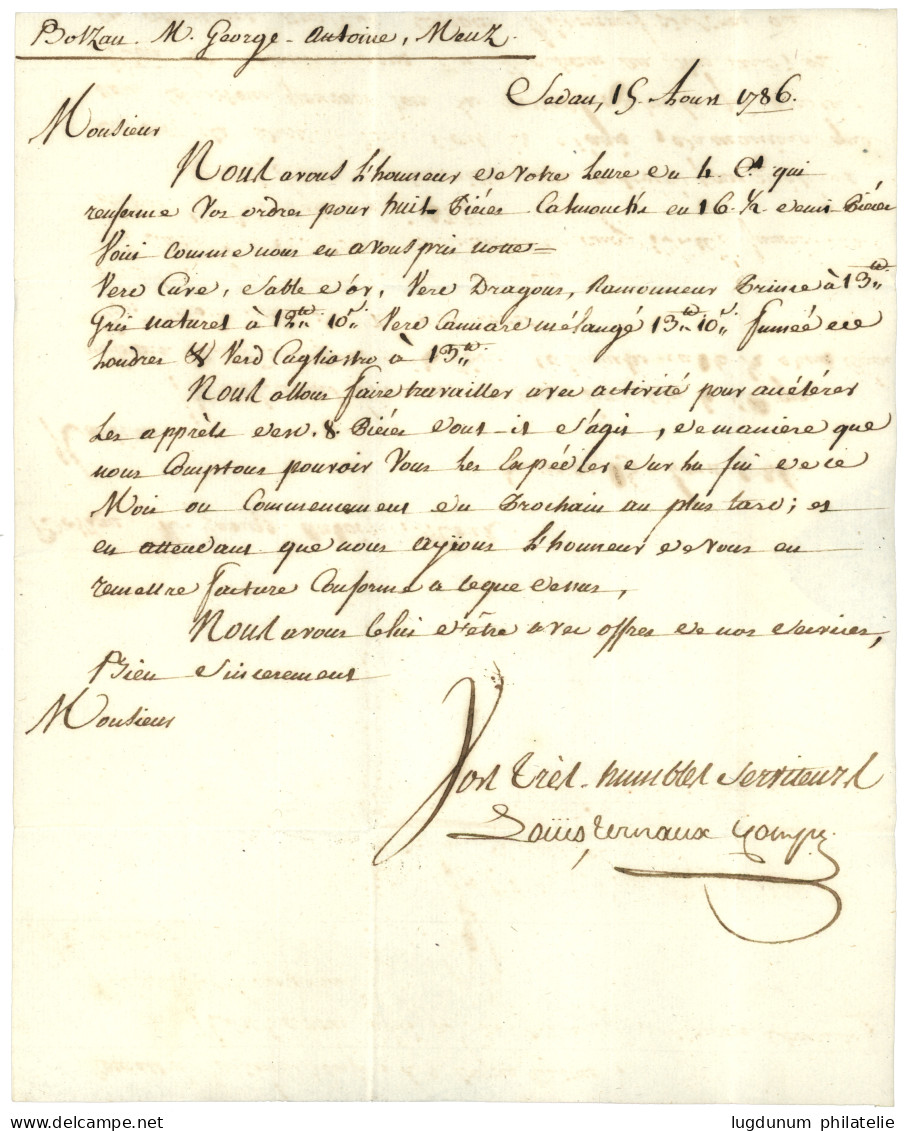 Botzan. M. George-Antoine, Menz.
Sedan, 15. Aoust 1786.
Monsieur
Nous avons L'honneur de votre Lettre du 4. Ct qui
renferme Vos ordres pour huit Piéces Calmouchs en 16. 1/2 demi Piéces
Voici comme nous en avons pris notte
Verd Cuve, Sable d'or, Verd Dragons, Ramonneur Prince à 13.tt
Gris naturel à 12.tt 10.s Verd Cannare mélangé 13.tt 10.s fumée de
Londres & Verd Cagliostro à 13.tt
Nous allons faire travailler avec activité pour accélérer
Les apprêts desd. 8. Piéces dont-il s'agit, de maniére que
nous Comptons pouvoir Vous les Expédier sur la fin de ce
Mois ou Commencement du Prochain au plus tard; et
en attendant que nous ayions L'honneur de Vous en
remettre facture Conforme a ce que dessus,
Nous avons celui d'être avec offres de nos Services,
Bien Sincerement
Monsieur
Vos très-humbles Serviteurs
Loüis Ternaux Comp.
lugdunum philatelie